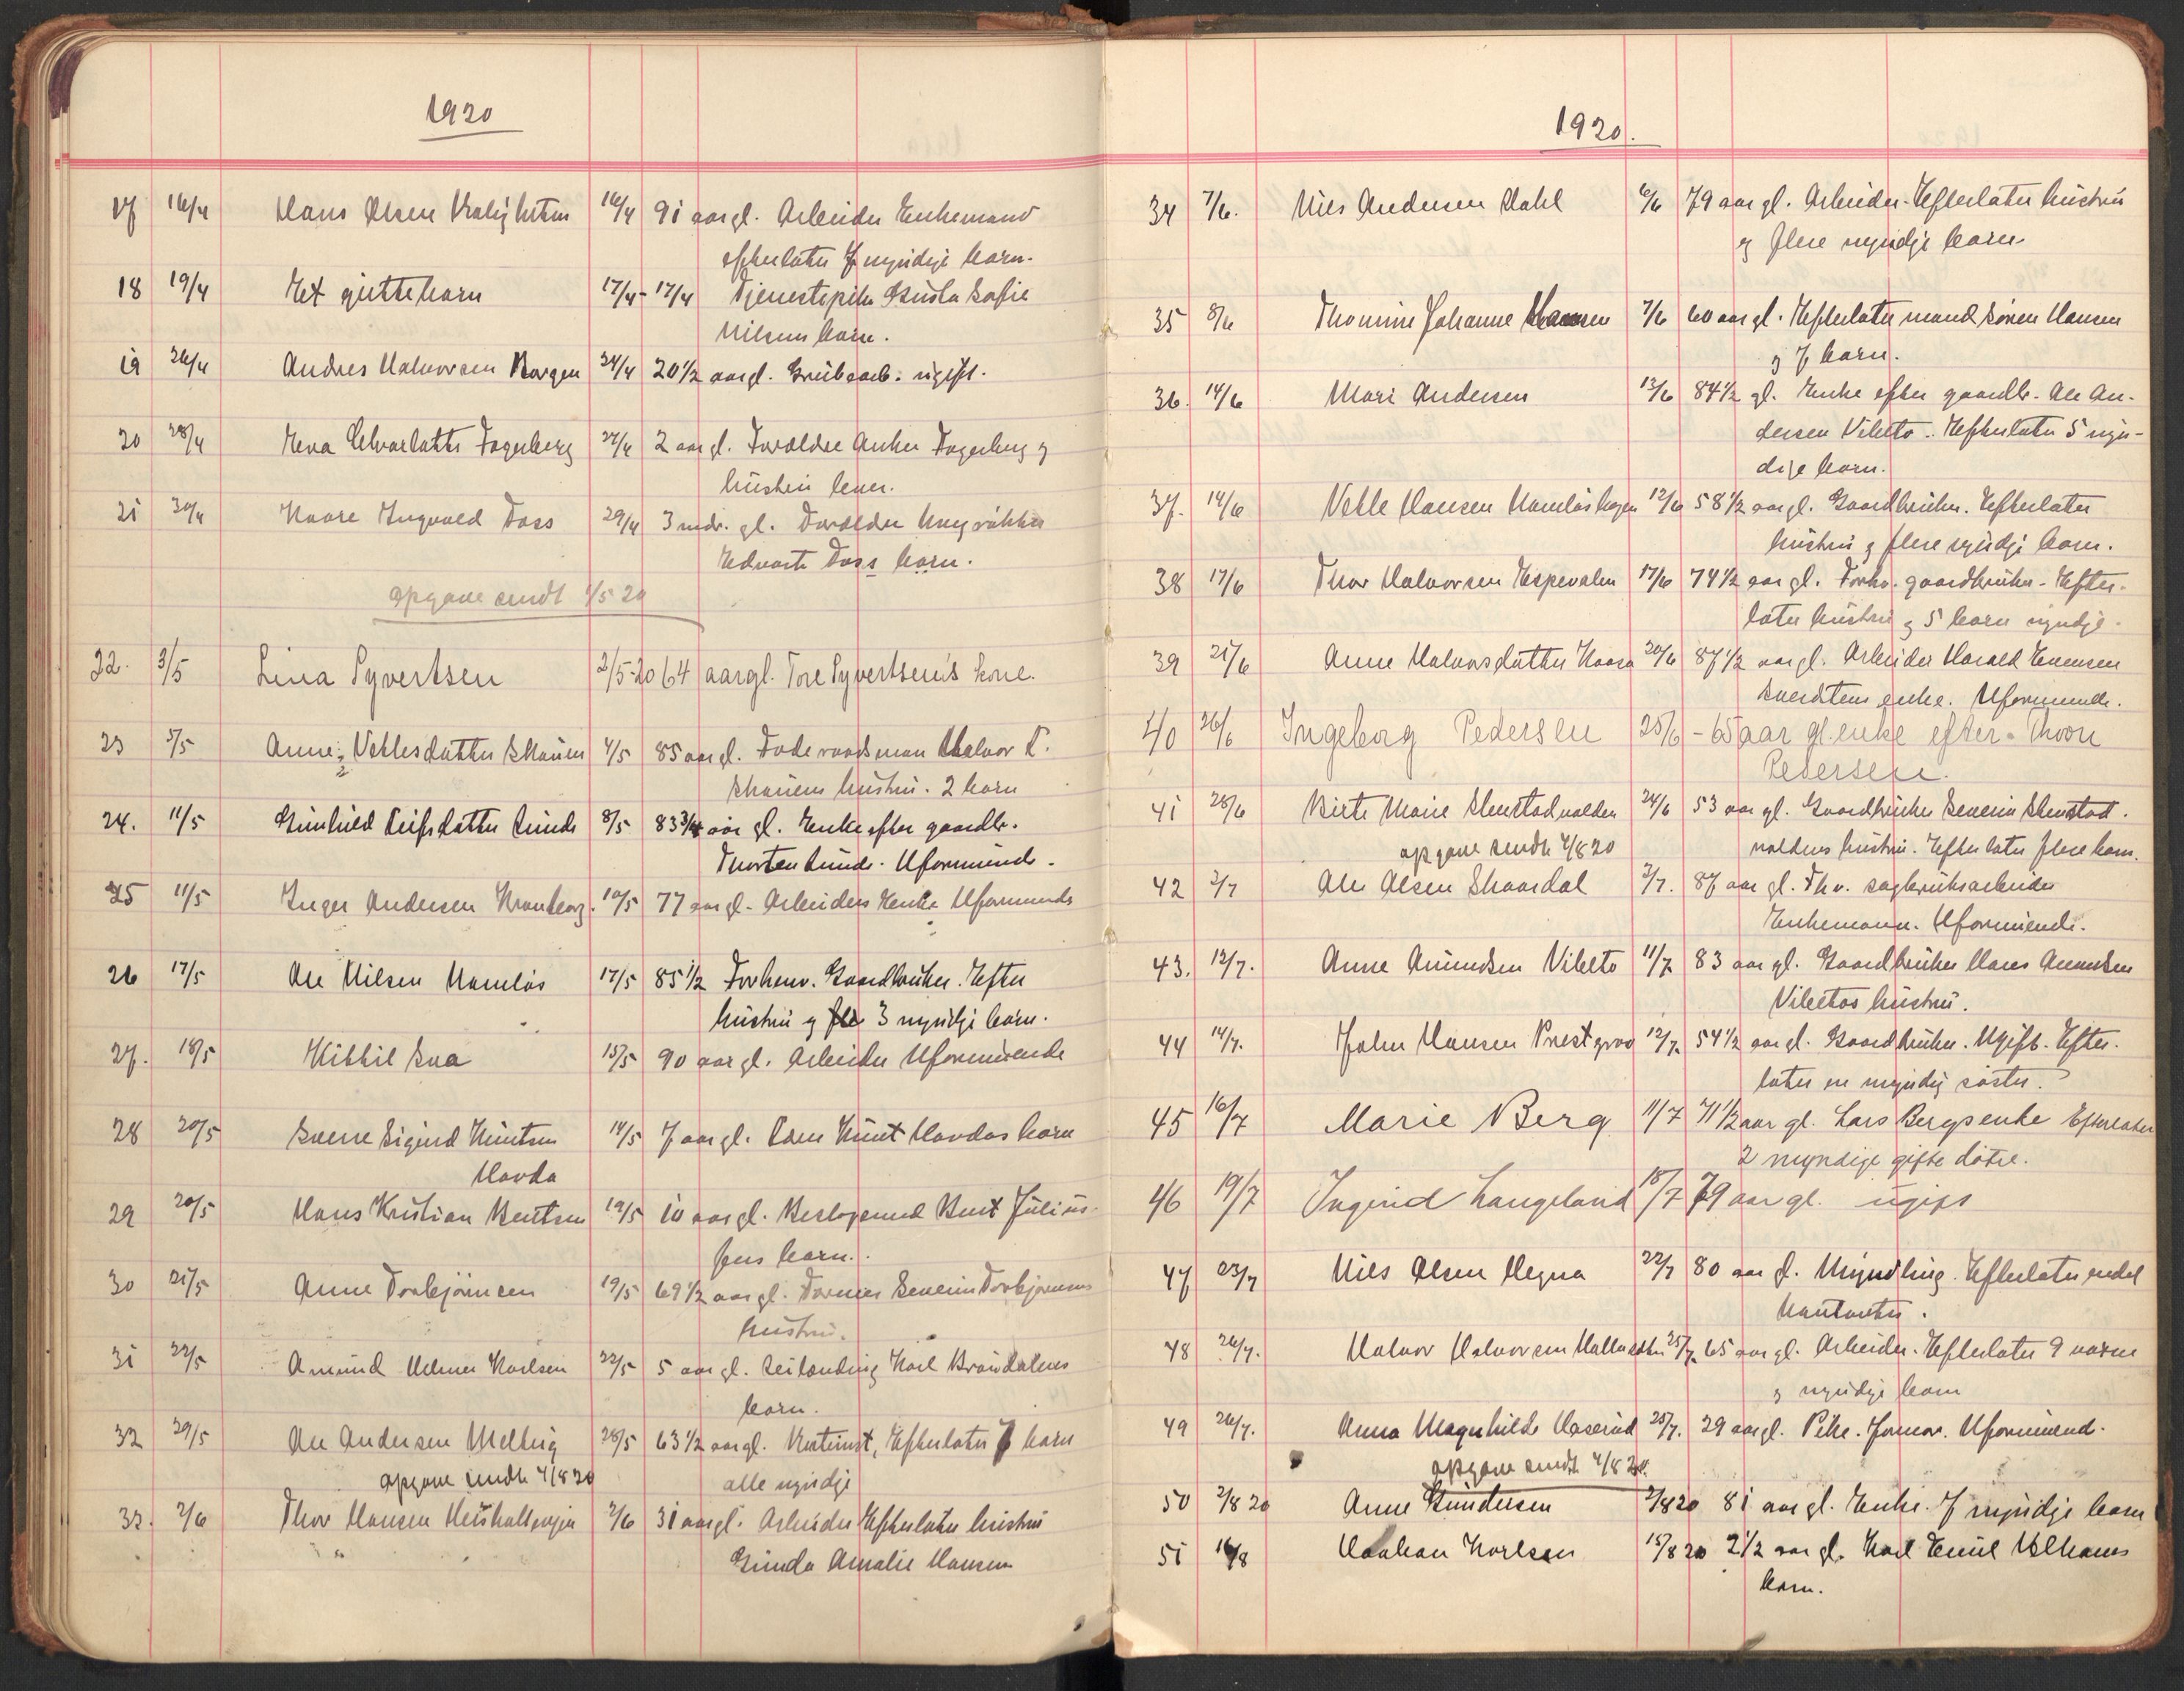 1920
17 16/4 Hans Olsen 16/4 91 aar gl. Arbeider Enkemand
efterlater 7 myndige barn.
18 19/4 Et guttebarn 17/4 - 17/4 Tjenestepike Gusta Sofie
Nilsens barn.
19 26/4 Andres Halvorsen Borgen 24/4 20 1/2 aar gl. Grubearb. ugift.
20 28/4 Eva Charlotte Fagerberg 27/4 2 aar gl. Forældre Anker Fagerberg og
hustru lever.
21 30/4 Kaare Ingvald Foss 29/4 3 mdr. gl. Forældre
Edvart Foss barn.
opgave sendt 1/5 20
22. 3/5 Lina Syvertsen 2/5-20 64 aar gl. Tore Syvertsen's kone.
23 5/5 Anne Vetlesdatter Skauen 4/5 85 aar gl. Føderaadsman Halvor T.
Skauens hustru. 2 barn
24. 11/5 Gunhild Leifsdatter Lunde 8/5 83 3/4 aar gl. Enke efter gaardbr.
Thorsten Lunde. Uformuende.
25 11/5 Inger Andersen Kronborg. 10/5 77 aar gl. Arbeiders Enke Uformuende
26 17/5 Ole Nilsen Namløs 17/5 85 1/2 Forhenv. Gaardbruker. Efter
hustru og 3 myndige barn.
27. 18/5 Kittil Sva 15/5 90 aar gl. Arbeider Uformuende
28 20/5 Sverre Sigurd Knutsen 14/5 7 aar gl. Knut Hovdas barn
Hovda
29 20/5 Hans Kristian Bentsen 19/5 10 aar gl. Bent Julius-
sens barn.
30 21/5 Anne Torbjørnsen 19/5 69 1/2 aar gl. Former Severin Torbjørnsens
hustru.
31 22/5 Amund Helmer Karlsen 22/5 5 aar gl. Karl Braudalens
barn.
32 29/5 Ole Andersen Melteig 28/5 63 1/2 aar gl. Efterlater 7 barn
opgave sendt 4/8 20 alle myndige
33. 2/6 Thor Hansen 2/6 31 aar gl. Arbeider Efterlater hustru
Gunda Amalie Hansen
1920.
34 7/6. Nils Andersen Dahl 6/6 79 aar gl. Arbeider. Efterlater hustru
og flere myndige barn.
35 8/6 Thomine Johanne Hansen 7/6 60 aar gl. Efterlater mand Søren Hansen
og 7 barn.
36. 14/6 Mari Andersen 13/6 84 1/2 gl. Enke efter gaardbr. Ole An-
dersen Vibeto. Efterlater 5 myn-
dige barn.
37. 14/6 Vetle Hansen Namløshagen 12/6 58 1/2 aar gl. Gaardbruker. Efterlater
hustru og flere myndige barn.
38 17/6 Thor Halvorsen Espevalen 17/6 74 1/2 aar gl. Forhv. gaardbruker. Efter-
later hustru og 5 barn myndge.
39 21/6 Anne Halvorsdatter Kaasa 20/6 87 1/2 aar gl. Arbeider Harald Evensen
enke. Uformuende.
40 26/6 Ingeborg Pedersen 25/6 - 65 aar gl. enke efter Thore
Pedersen.
41 28/6 Birte Marie Slemstadvolden 24/6 53 aar gl. Gaardbruker Severin Slemstad-
opgave sendt 4/8 20 voldens hustru. Efterlater flere barn.
42 2/7 Ole Olsen Skaardal 2/7. 87 aar gl. Fhv. sagbruksarbeider
Enkemann. Uformuende.
43. 12/7. Anne Amundsen Vibeto 11/7 83 aar gl. Gaardbruker Hans Amundsen
Vibetos hustru.
44 14/7. John Hansen Prestgrav 12/7. 54 1/2 aar gl. Gaardbruker. Ugift. Efter-
later en myndig søster.
45 16/7 Marie Berg 11/7 71 1/2 aar gl. Lars Bergs enke Efterlater
2 myndige gifte døtre.
46 19/7 Ingerid Langeland 18/7 79 aar gl. ugift
47 23/7 Nils Olsen Hegna 22/7 80 aar gl. Efterlater
48 26/7. Halvor Halvorsen 25/7. 65 aar gl. Arbeider. Efterlater 9 voksne
og myndige barn
49 26/7. Anna Magnhilde Haserud 25/7. 29 aar gl. Pike. Uformuend.
opgave sendt 4/8 20.
50 2/8 20 Anne Gundersen 2/8 20 81 aar gl. Enke. 7 myndige barn
51 16/8 Haakon Karlsen 15/8 20 2 1/2 aar gl. Karl Emil
barn.